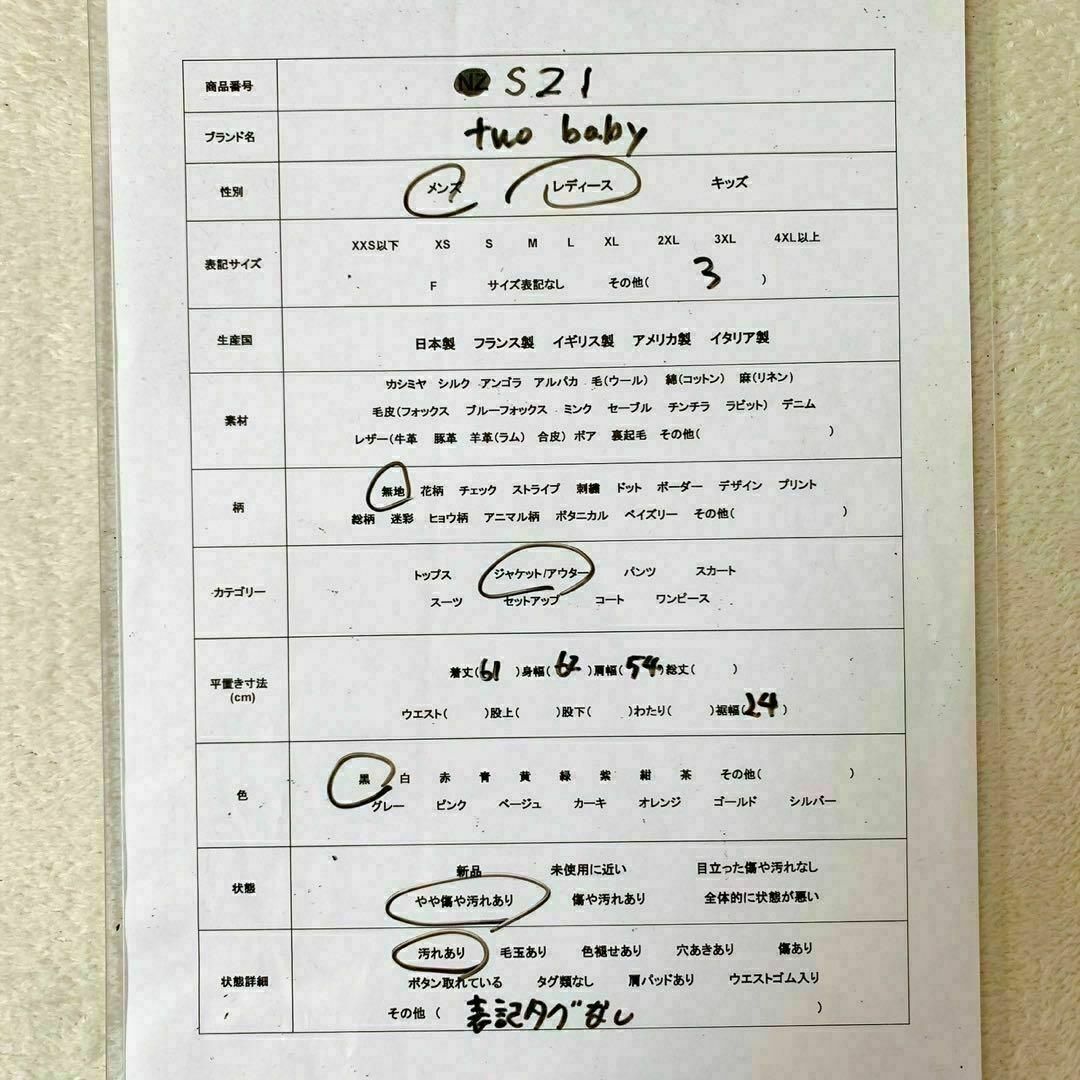 商品番号 NZ S21
ブランド名 two baby
性別 メンズ レディース キッズ
XXS以下 XS S M L XL 2XL 3XL 4XL以上
表記サイズ
F サイズ表記なし その他( 3 )
生産国 日本製 フランス製 イギリス製 アメリカ製 イタリア製
カシミヤ シルク アンゴラ アルパカ 毛(ウール) 綿(コットン) 麻(リネン)
素材 毛皮(フォックス ブルーフォックス ミンク セーブル チンチラ ラビット) デニム
レザー(牛革 豚革 羊革(ラム) 合皮) ボア 裏起毛 その他( )
無地 花柄 チェック ストライプ 刺繍 ドット ボーダー デザイン プリント
柄
総柄 迷彩 ヒョウ柄 アニマル柄 ボタニカル ペイズリー その他( )
トップス ジャケット/アウター パンツ スカート
カテゴリー
スーツ セットアップ コート ワンピース
着丈(61 )身幅( 62 )肩幅( 54 )総丈( )
平置き寸法
(cm)
ウエスト( )股上( )股下( )わたり( )裾幅( 24 )
黒 白 赤 青 黄 緑 紫 紺 茶 その他( )
色
グレー ピンク ベージュ カーキ オレンジ ゴールド シルバー
新品 未使用に近い 目立った傷や汚れなし
状態
やや傷や汚れあり 傷や汚れあり 全体的に状態が悪い
汚れあり 毛玉あり 色褪せあり 穴あきあり 傷あり
状態詳細 ボタン取れている タグ類なし 肩パッドあり ウエストゴム入り
その他 ( 表記タグなし )